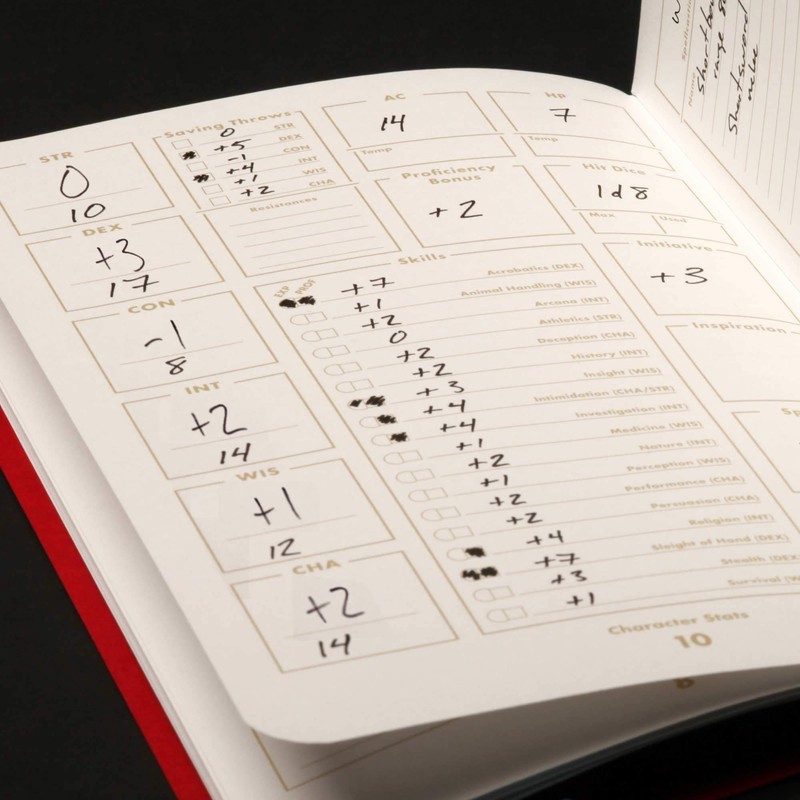 STR
0
10
DEX
+3
17
CON
-1
8
INT
+2
14
WIS
+1
12
CHA
+2
14
Saving Throws
0 STR
+5 DEX
-1 CON
+4 INT
+1 WIS
+2 CHA
Resistances
AC
14
Temp
HP
7
Temp
Proficiency
Bonus
+2
Hit Dice
1d8
Max
Used
Initiative
+3
Inspiration
Sp
Skills
EXP PROF
+7 Acrobatics (DEX)
+1 Animal Handling (WIS)
+2 Arcana (INT)
0 Athletics (STR)
+2 Deception (CHA)
+2 History (INT)
+3 Insight (WIS)
+4 Intimidation (CHA/STR)
+4 Investigation (INT)
+1 Medicine (WIS)
+2 Nature (INT)
+1 Perception (WIS)
+2 Performance (CHA)
+2 Persuasion (CHA)
+4 Religion (INT)
+7 Sleight of Hand (DEX)
+3 Stealth (DEX)
+1 Survival (W
Character Stats
10
8
Name
Shortbow
range 8
Shortsword
melee